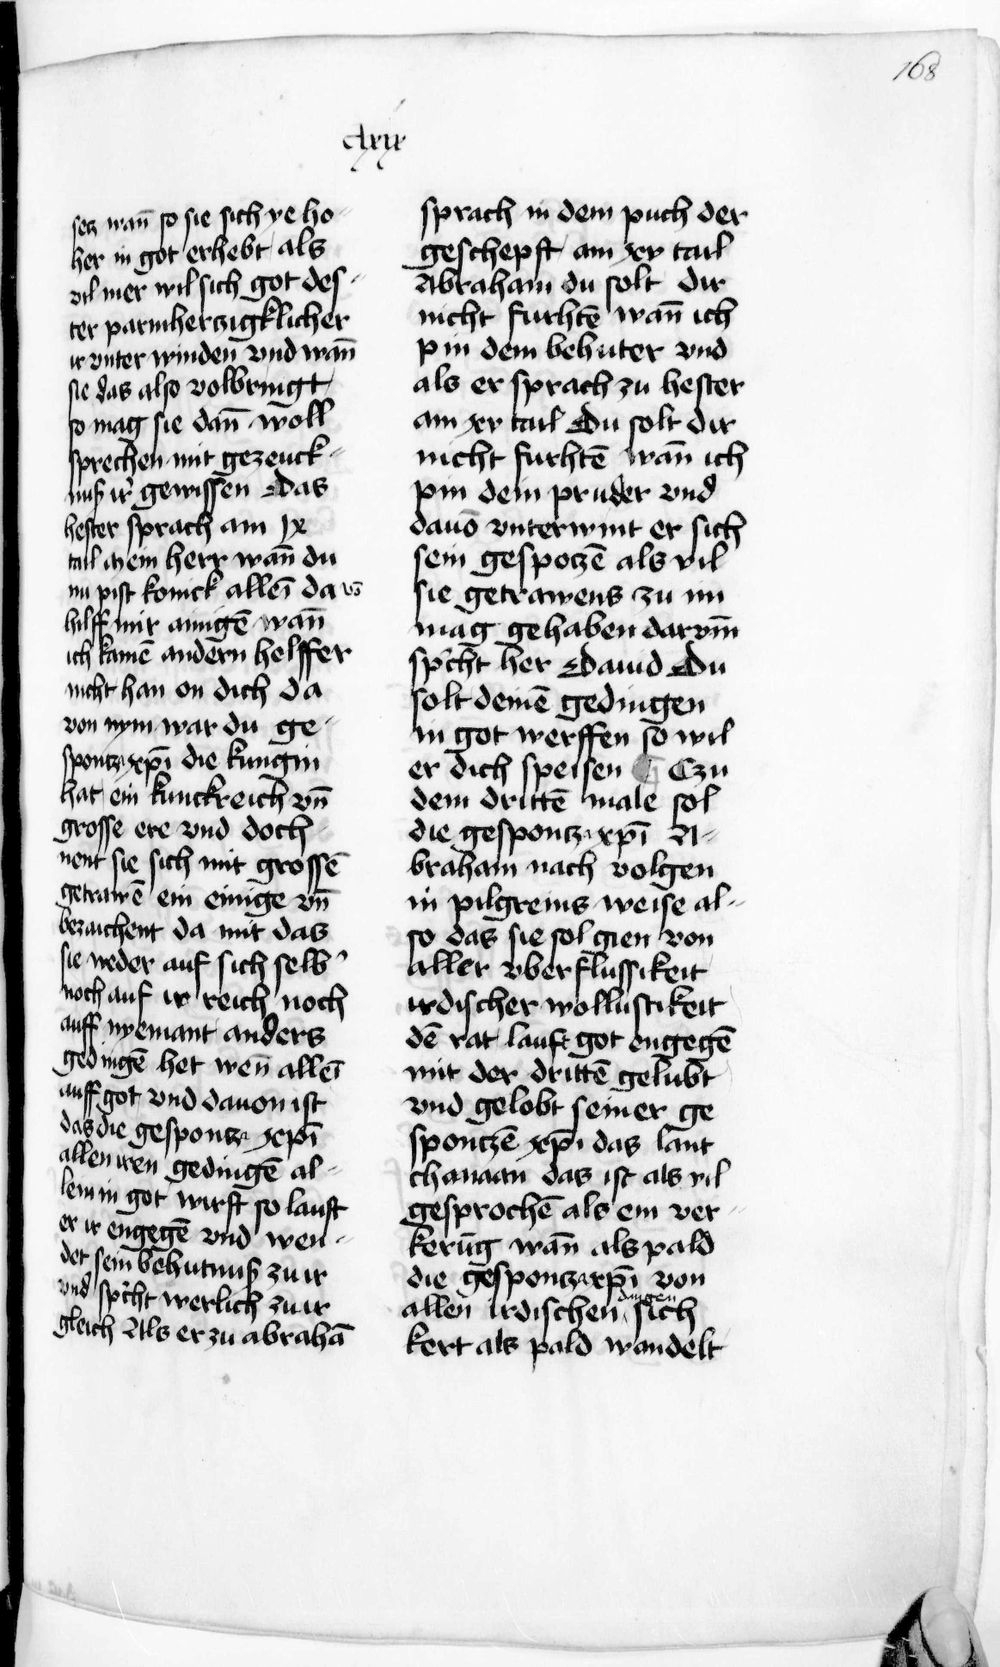 168
clxix
setz wañ so sie sich ye ho-
her in got erhebt als
vil mer wil sich got des-
ter parmherzigklicher
ir vnter winden vnd wañ
sie das also volbringt
so mag sie dañ woll
sprechen mit gezeuck-
nuß ir gewissen Das
hester sprach am ix
tail mein herr wañ du
nu pist konick alleī da vō
hilff mir ainigē wañ
ich kainē andern helffer
nicht han on dich da
von nym war du ge-
spontz xp̄i die kungin
hat ein kunckreich vn̄
grosse ere vnd doch
nent sie sich mit grossē
getrawē ein einige vn̄
bezaichent da mit das
sie weder auf sich selb'
noch auf ir reich noch
auff nyemant anders
gedingē het wen̄ alleī
auff got vnd dauon ist
das die gespontz xp̄i
allen iren gedingē al-
lein in got wirft so lauft
er ir engegē vnd wen-
det sein behutnuß zu ir
vnd sp̓cht werlich zu ir
gleich Als er zu abrahā
sprach in dem puch der
geschepft am xv tail
Abraham du solt dir
nicht furhtē wañ ich
pin dein behuter vnd
als er sprach zu hester
am xv tail Du solt dir
nicht furhtē wañ ich
pin dein pruder vnd
dauō vnterwint er sich
sein gespoczē als vil
sie getrawens zu im
mag gehaben darvm̄
sp̓cht her Dauid Du
solt deinē gedingen
in got werffen so wil
er dich speisen Czu
dem drittē male sol
die gespontz xp̄i A-
braham nach volgen
in pilgreins weise al-
so das sie sol gien von
aller vberflussikeit
irdischer wollustikeit
dē rat lauft got engegē
mit der drittē gelubt
vnd gelobt seiner ge
spontzē xp̄i das lant
chanaan das ist als vil
gesprochē als ein ver-
kerūg wañ als pald
die gespontz xp̄i von
allen irdischen dingen sich
kert als pald wandelt